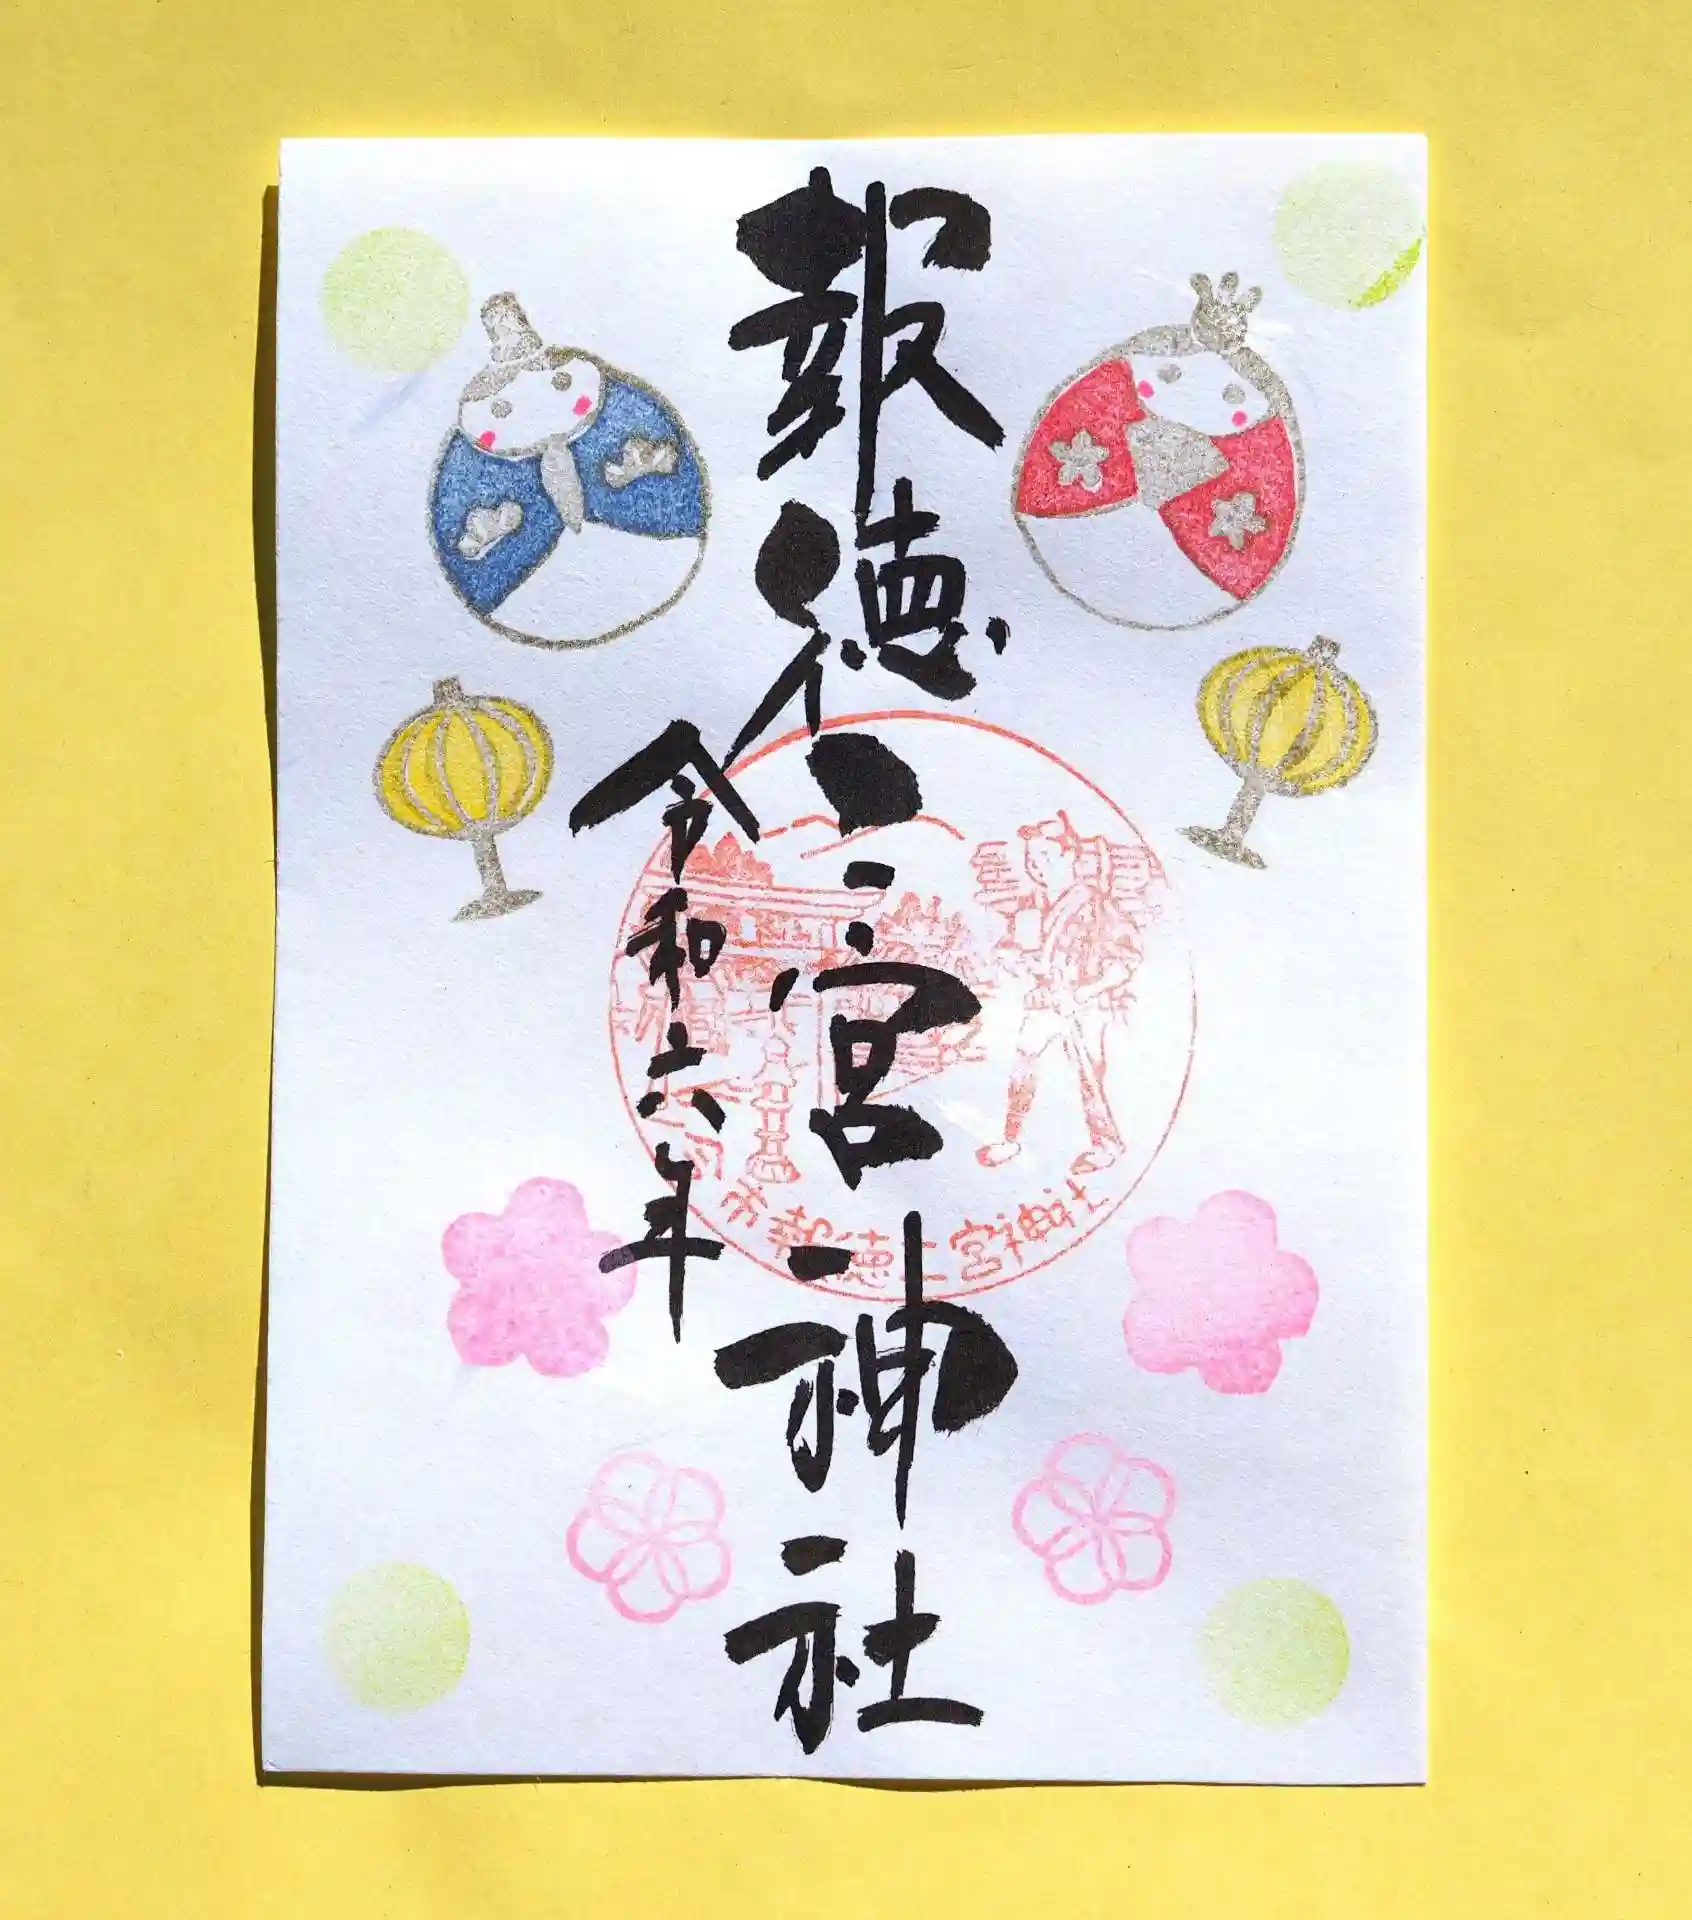 報徳二宮神社
令和六年
市報徳二宮神社